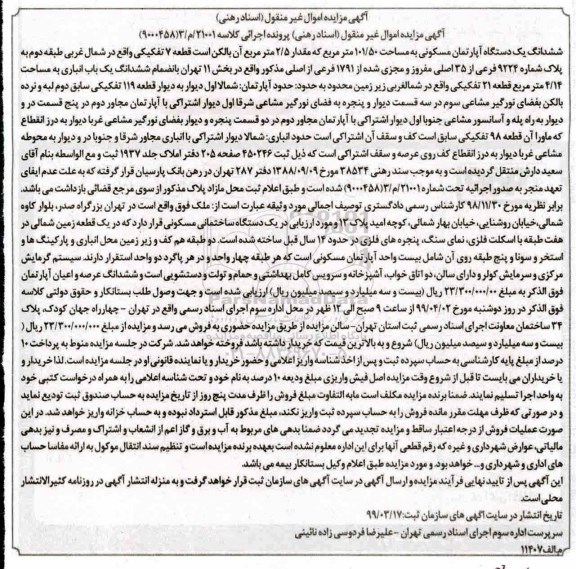 آگهی مزایده اموال غیر منقول (اسناد رهنی)
آگهی مزایده اموال غیر منقول (اسناد رهنی) پرونده اجرائی کلاسه ۲۱۰۰۱/م/۳(۹۰۰۰۴۵۸)
ششدانگ یک دستگاه آپارتمان مسکونی به مساحت ۱۰۱/۵۰ متر مربع که مقدار ۲/۵ متر مربع آن بالکن است قطعه ۷ تفکیکی واقع در شمال غربی طبقه دوم به
پلاک شماره ۹۲۲۴ فرعی از ۳۵ اصلی مفروز و مجزی شده از ۱۷۹۱ فرعی از اصلی مذکور واقع در بخش ۱۱ تهران بانضمام ششدانگ یک باب انباری به مساحت
۴/۱۴ متر مربع قطعه ۲۱ تفکیکی واقع در شمالغربی زیر زمین محدود به حدود: حدود آپارتمان: شمالا اول دیوار به دیوار قطعه ۱۱۹ تفکیکی سابق دوم لبه و نرده
بالکن بفضای نورگیر مشاعی سوم در سه قسمت دیوار و پنجره به فضای نورگیر مشاعی شرقا اول دیوار اشتراکی با آپارتمان مجاور دوم در پنج قسمت در و
دیوار به راه پله و آسانسور مشاعی جنوبا اول دیوار اشتراکی با آپارتمان مجاور دوم در دو قسمت پنجره و دیوار بفضای نورگیر مشاعی غربا دیوار به درز انقطاع
که ماورا آن قطعه ۹۸ تفکیکی سابق است کف و سقف آن اشتراکی است حدود انباری: شمالا دیوار اشتراکی با انباری مجاور شرقا و جنوبا در و دیوار به محوطه
مشاعی غربا دیوار به درز انقطاع کف روی عرصه و سقف اشتراکی است که ذیل ثبت ۴۵۰۲۴۶ صفحه ۲۰۵ دفتر املاک جلد ۱۹۳۷ ثبت و مع الواسطه بنام آقای
سعید دارش منتقل گردیده است و به موجب سند رهنی ۳۸۵۳۴ مورخ ۱۳۸۸/۰۹/۰۹ دفتر ۲۸۷ تهران در رهن بانک پارسیان قرار گرفته که به علت عدم ایفای
تعهد منجر به صدور اجرائیه تحت شماره ۲۱۰۰۱/م/۳(۹۰۰۰۴۵۸) شده است و طبق اعلام ثبت محل مازاد پلاک مذکور از سوی مرجع قضائی بازداشت می باشد.
برابر نظریه مورخ ۹۸/۱۱/۳۰ کارشناس رسمی دادگستری توصیف اجمالی مورد وثیقه عبارت است از: ملک فوق واقع است در تهران بزرگراه صدر، بلوار کاوه
شمالی، خیابان روشنایی، خیابان بهار شمالی، کوچه امید، پلاک مورد ارزیابی در یک دستگاه ساختمانی مسکونی قرار دارد که در یک قطعه زمین شمالی در
هفت طبقه با اسکلت فلزی، نمای سنگ، پنجره های فلزی در حدود ۱۴ سال قبل ساخته شده است. دو طبقه هم کف و زیر زمین محل انباری و پارکینگ ها و
استخر و سونا و پنج طبقه روی آن شامل بیست واحد آپارتمان مسکونی است که هر طبقه چهار واحد و در هر پاگرد دو واحد استقرار دارند. سیستم گرمایش
مرکزی و سرمایش کولر و دارای سالن، دو اتاق خواب، آشپزخانه و سرویس کامل بهداشتی و حمام و توالت و دستشویی است و ششدانگ عرصه و اعیان آپارتمان
فوق الذکر به مبلغ ۲۳/۳۰۰/۰۰۰/۰۰۰ ریال (بیست و سه میلیارد و سیصد میلیون ریال) ارزیابی شده است و جهت وصول طلب بستانکار و حقوق دولتی کلاسه
فوق الذکر در روز دوشنبه مورخ ۹۹/۰۴/۰۲ از ساعت ۹ صبح الی ۱۲ ظهر در محل اداره سوم اجرای اسناد رسمی واقع در تهران - چهارراه جهان کودک، پلاک
۳۴ ساختمان معاونت اجرای اسناد رسمی ثبت استان تهران-سالن مزایده از طریق مزایده حضوری به فروش می رسد و مزایده از مبلغ ۲۳/۳۰۰/۰۰۰/۰۰۰ ریال (
بیست و سه میلیارد و سیصد میلیون ریال) شروع و به بالاترین قیمت که خریدار داشته باشد فروخته خواهد شد. شرکت در جلسه مزایده منوط به پرداخت ۱۰
درصد از مبلغ پایه کارشناسی به حساب سپرده ثبت و پس از اخذ شناسه واریز اعلامی و حضور خریدار و یا نماینده قانونی او در جلسه مزایده است. لذا خریدار و
یا خریداران می بایست تا قبل از شروع وقت مزایده اصل فیش واریزی مبلغ ودیعه ۱۰ درصد به نام خود و تحت شناسه اعلامی را به همراه درخواست کتبی خود
به واحد اجرا تسلیم نمایند. ضمنا برنده مزایده مکلف است مابه التفاوت مبلغ فروش را ظرف مدت پنج روز از تاریخ مزایده به حساب صندوق ثبت تودیع نماید
و در صورتی که ظرف مهلت مقرر مانده فروش را به حساب سپرده ثبت واریز نکند، مبلغ مذکور قابل استرداد نبوده و به حساب خزانه واریز خواهد شد. در این
صورت عملیات فروش از درجه اعتبار ساقط و مزایده تجدید می گردد ضمنا بدهی های مربوط به آب و برق و گاز اعم از انشعاب و اشتراک و مصرف و نیز بدهی
مالیاتی، عوارض شهرداری و غیره که رقم قطعی آنها برای این اداره معلوم نشده است بعهده برنده مزایده است و تنظیم سند انتقال موکول به ارائه مفاصا حساب
های اداری و شهرداری و... خواهد بود. و مورد مزایده طبق اعلام وکیل بستانکار بیمه می باشد.
این آگهی پس از تایید نهایی فرآیند مزایده و ارسال آگهی در سایت آگهی های سازمان ثبت قرار خواهد گرفت و به منزله انتشار آگهی در روزنامه کثیرالانتشار
محلی است.
تاریخ انتشار در سایت آگهی های سازمان ثبت: ۹۹/۰۳/۱۷
سرپرست اداره سوم اجرای اسناد رسمی تهران - علیرضا فردوسی زاده نائینی
م الف ۱۱۴۰۷